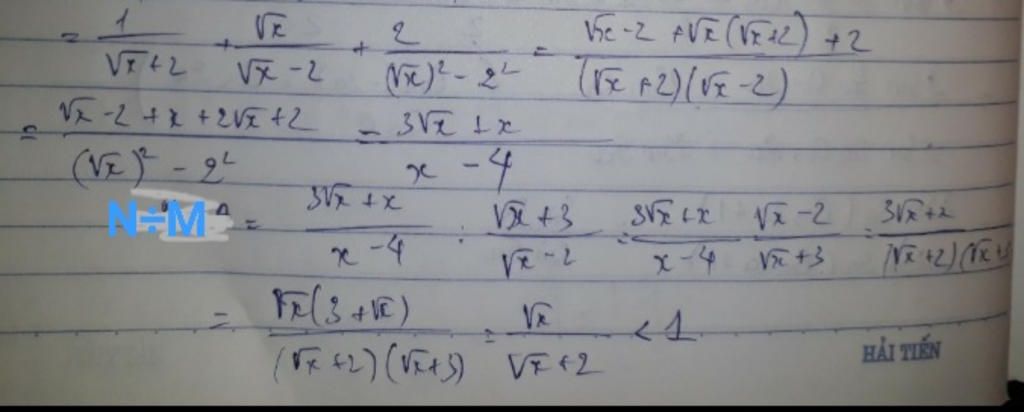 = 1/(√x+2) + √x/(√x-2) + 2/((√x)²-2²) = (√x-2+√x(√x+2)+2)/((√x+2)(√x-2))
= (√x-2+x+2√x+2)/((√x)²-2²) = (3√x+x)/(x-4)
N÷M = (3√x+x)/(x-4) : (√x+3)/(√x-2) = (3√x+x)/(x-4) (√x-2)/(√x+3) = (3√x+x)/((√x+2)(√x+3
= √x(3+√x)/((√x+2)(√x+3)) = √x/(√x+2) < 1
HẢI TIẾN